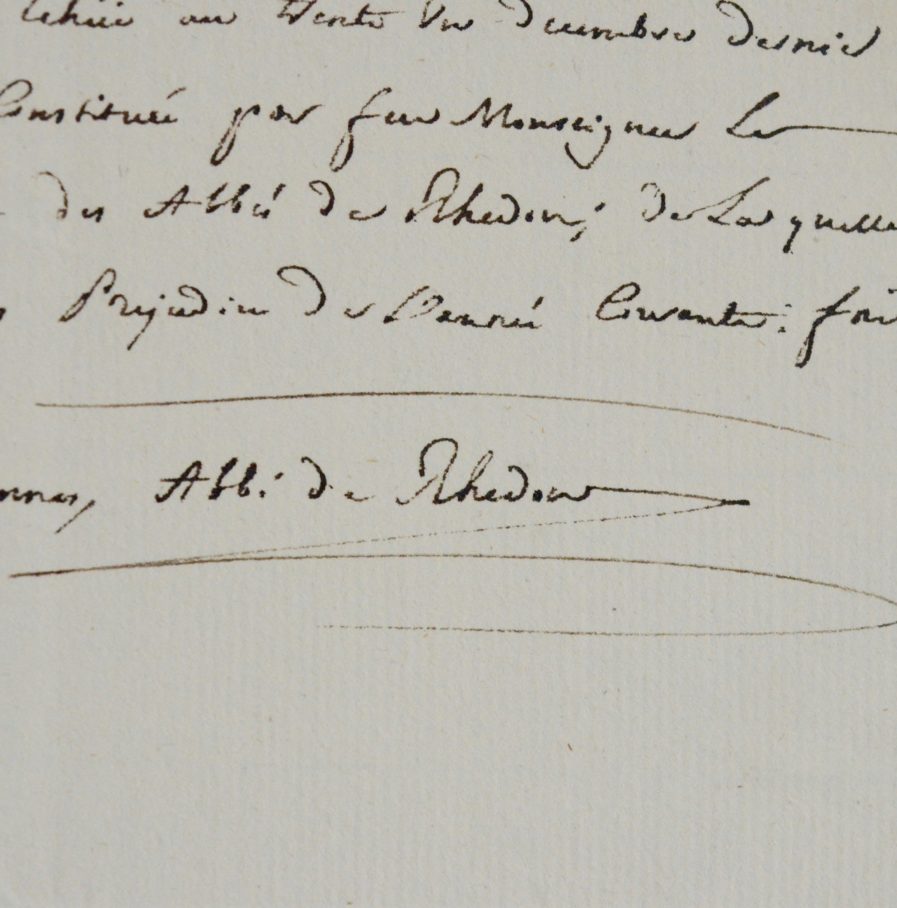 Echüe au trente un decembre dernier
Constituée par feu Monseigneur Le
des Abbé de Rhedon; de Laquelle
Prejudice de L'année Courante: fait
nnes, Abbé de Rhedon